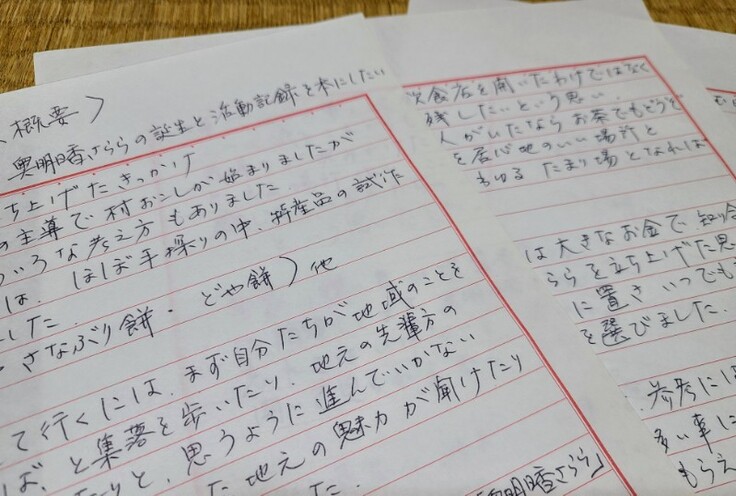 概要〉
奥明日香さららの誕生と活動記録を本にしたい
ち上げたきっかけ
の主導で村おこしが始まりましたが
ろな考え方もありました
は、ほぼ手探りの中、特産品の試作
した
さなぶり餅・どや餅）他
て行くには、まず自分たちが地域のことを
ば、と集落を歩いたり、地元の先輩方の
たりと、思うように進んでいかない
た地元の魅力が聞けたり
た
「奥明日香さらら」
食店を開いたわけではなく
残したいという思い
人がいたならお茶でもどうぞ
を居心地のいい場所と
たまり場となれば
は大きなお金で、知り合
ららを立ち上げた思
に置き いつでも
を選びました
参考には
多い事に
もらえ